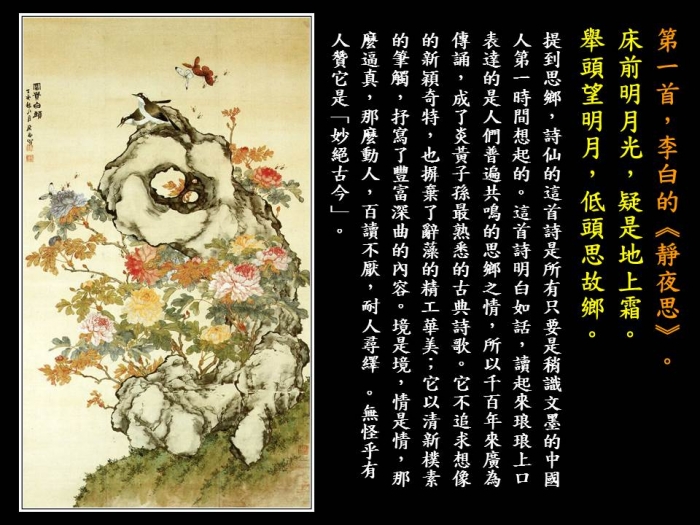 第一首，李白的《靜夜思》。
床前明月光，疑是地上霜。
舉頭望明月，低頭思故鄉。
提到思鄉，詩仙的這首詩是所有只要是稍識文墨的中國
人第一時間想起的。這首詩明白如話，讀起來琅琅上口
表達的是人們普遍共鳴的思鄉之情，所以千百年來廣為
傳誦，成了炎黃子孫最熟悉的古典詩歌。它不追求想像
的新穎奇特，也摒棄了辭藻的精工華美；它以清新樸素
的筆觸，抒寫了豐富深曲的內容。境是境，情是情，那
麼逼真，那麼動人，百讀不厭，耐人尋繹 。無怪乎有
人贊它是「妙絕古今」。
富貴白頭